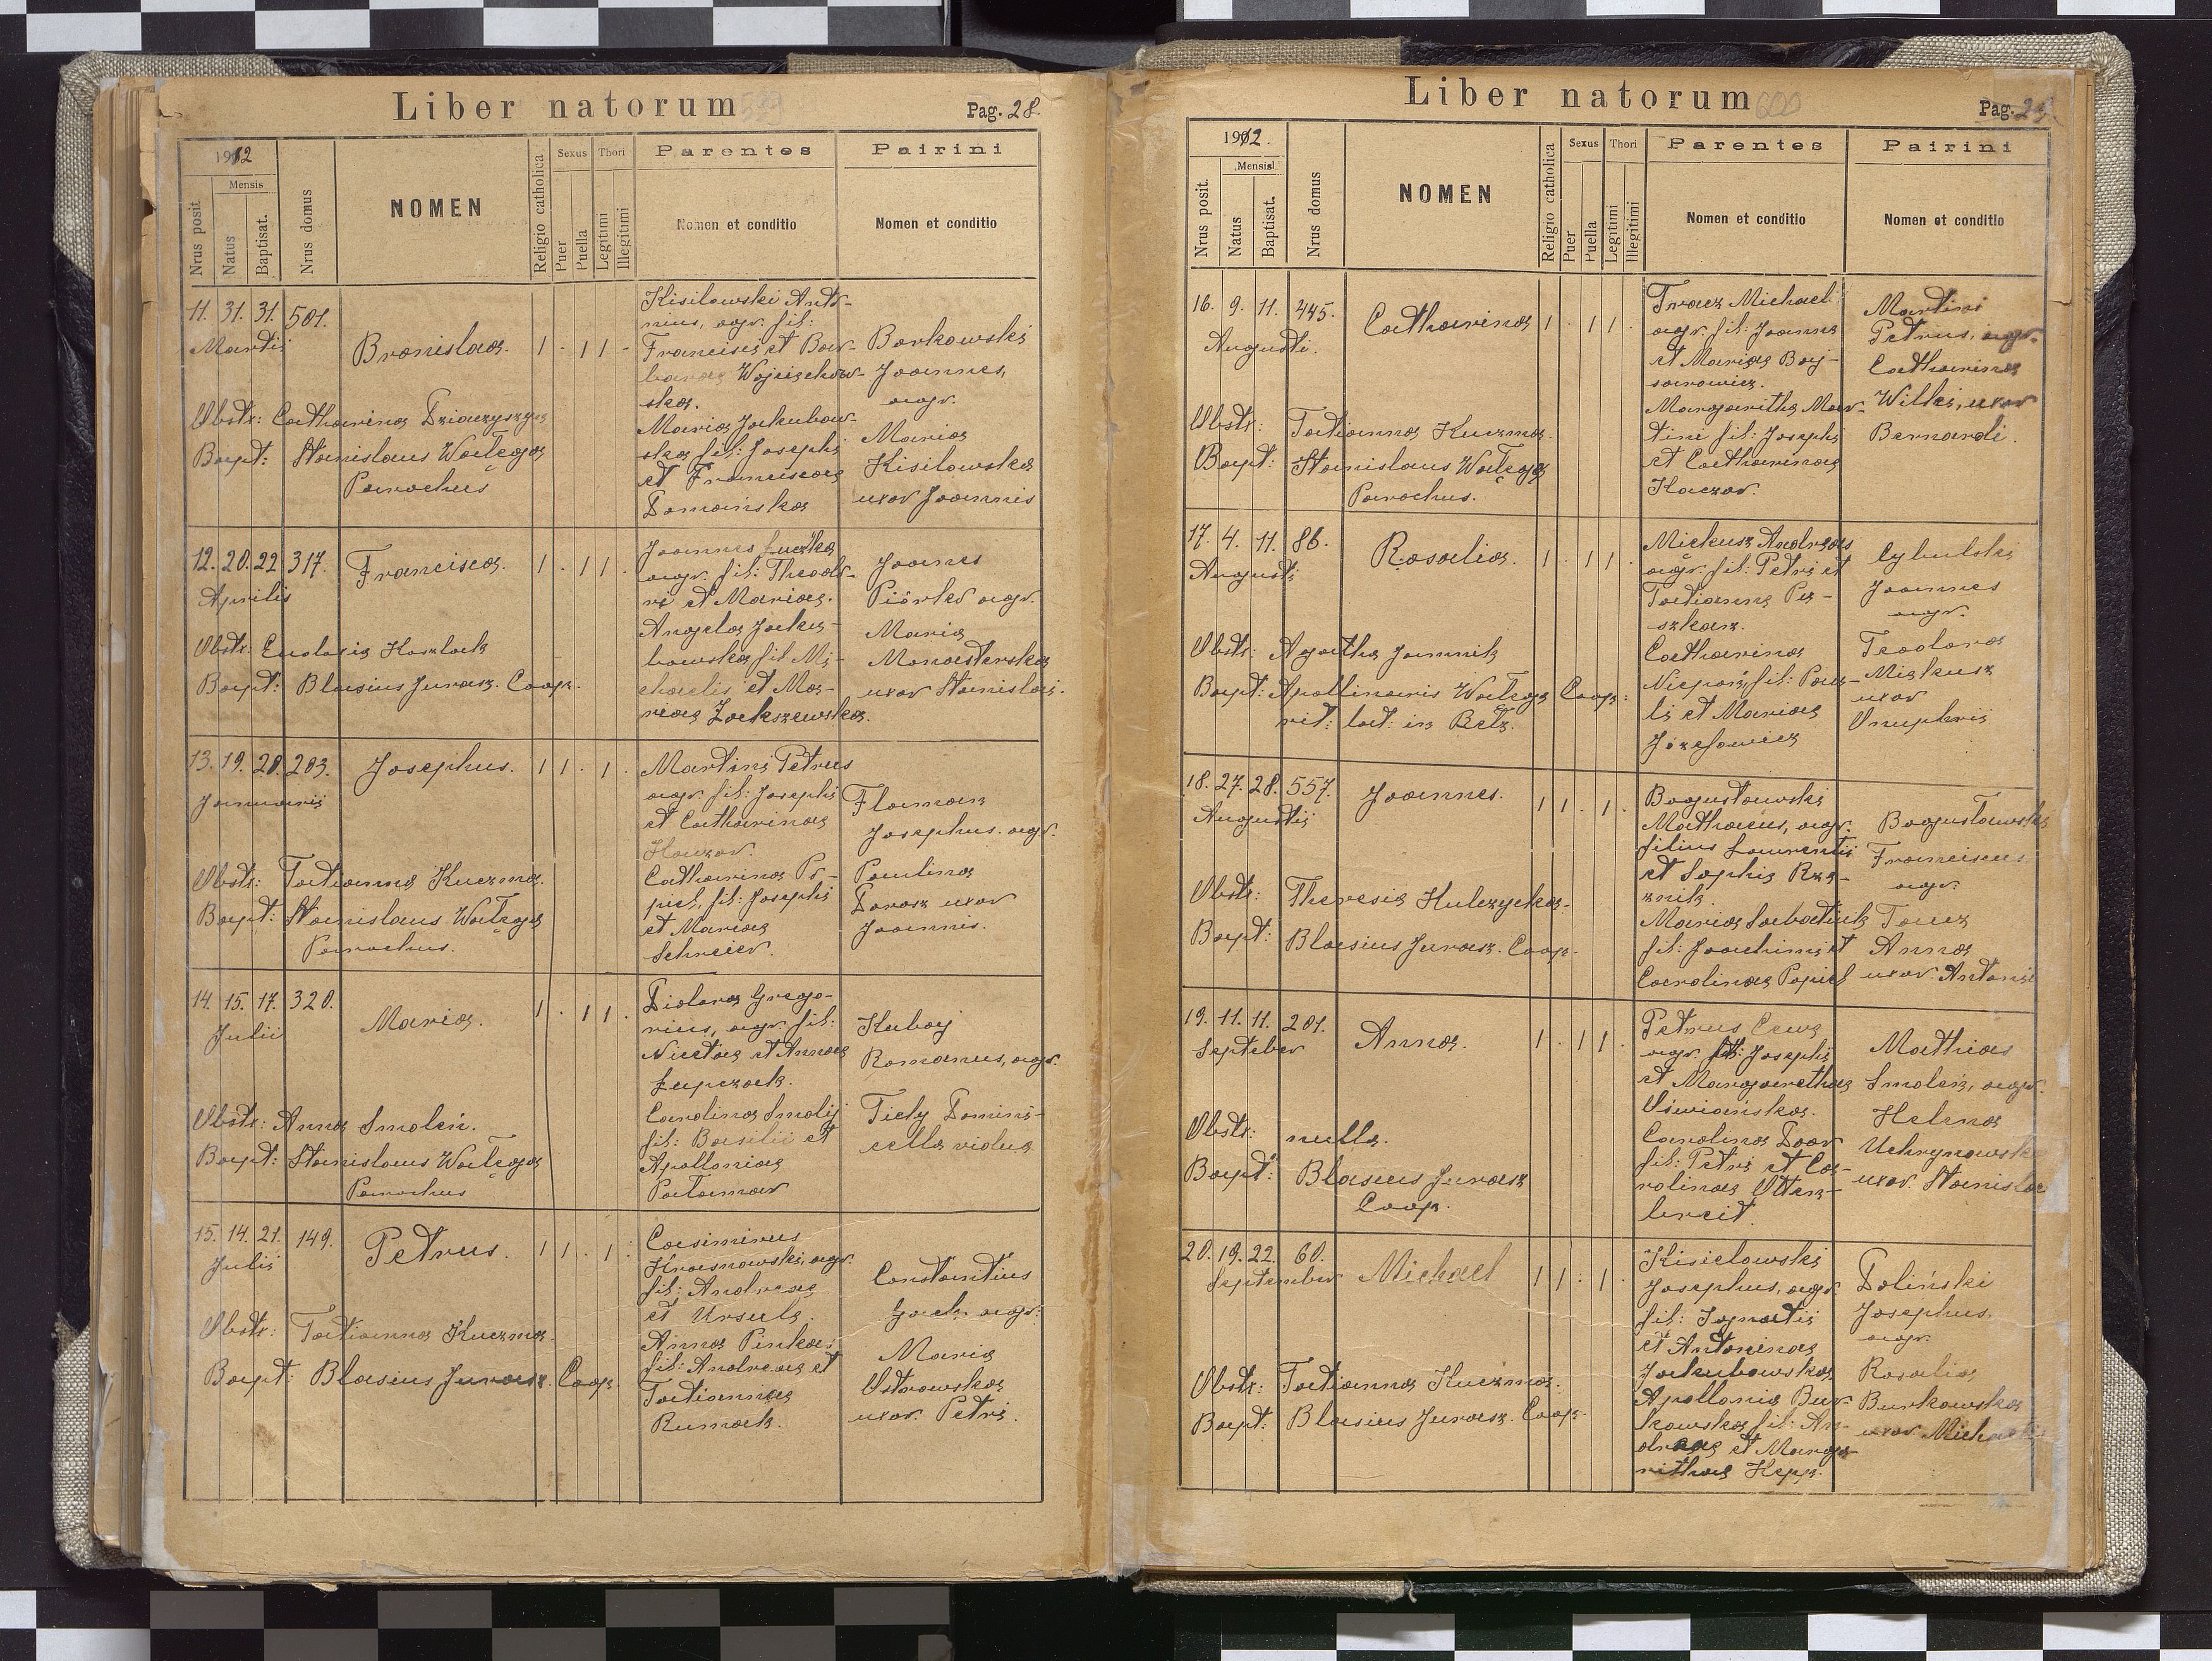 Liber natorum 599
Pag. 28.
1912
Mensis
Nrus posit.
Natus
Baptisat.
Nrus domus
NOMEN
Religio catholica
Sexus
Puer
Puella
Thori
Legitimi
Illegitimi
Parentes
Nomen et conditio
Pairini
Nomen et conditio
11. 31. 31. 501.
Martii
Bronislaa. 1 - 1 1 -
Obstx: Catharina Dziaczyszyn
Bapt: Stanislaus Wałęga
Parochus
Kisilowski Anto-
nius, agr. fil:
Francisci et Bar-
barae Wojciechow-
ska.
Maria Jakubow-
ska fil: Josephi
et Franciscae
Domańska
Borkowski
Joannes,
agr.
Maria
Kisilowska
uxor Joannis
12. 20. 22. 317.
Aprilis
Francisca. 1 . 1 1 .
Obstx: Eudoxia Koszlak
Bapt: Blasius Jurasz. Coop.
Joannes Luczka
agr. fil: Theodo-
ri et Mariae.
Angela Jaku-
bowska fil Mi-
chaelis et Ma-
riae Zakszewska.
Joannes
Piórko agr.
Maria
Monasterska
uxor Stanislai.
13. 19. 20. 203.
Januarii
Josephus. 1 1 . 1 .
Obstx: Tatianna Kuczma.
Bapt: Stanislaus Wałęga
Parochus.
Martini Petrus
agr. fil: Josephi
et Catharinae
Kaczor.
Catharina Po-
piel, fil: Josephi
et Mariae
Schreier.
Flaman
Josephus. agr.
Paulina
Dorosz uxor
Joannis.
14. 15. 17. 320.
Julii
Maria. 1 . 1 1 .
Obstx: Anna Smoleń.
Bapt: Stanislaus Wałęga
Parochus
Didora Grego-
rius, agr. fil:
Nicetae et Annae
Lupczak.
Carolina Smolij
fil: Basilii et
Apolloniae
Kubaj
Romanus, agr.
Tichy Domini-
cella vidua
15. 14. 21. 149.
Julii
Petrus. 1 1 . 1 .
Obstx: Tatianna Kuczma.
Bapt: Blasius Jurasz. Coop.
Casimirus
Krasnowski, agr.
fil: Andreae
et Ursula.
Anna Pinkas
fil: Andreae et
Tatiannae
Rumak.
Constantius
agr:
Maria
Ostrowska
uxor. Petri.
Liber natorum 600
Pag.
1912.
Mensis
Nrus posit.
Natus
Baptisat.
Nrus domus
NOMEN
Religio catholica
Sexus
Puer
Puella
Thori
Legitimi
Illegitimi
Parentes
Nomen et conditio
Pairini
Nomen et conditio
16. 9. 11. 445.
Augusti.
Catharina 1 . 1 1 .
Obstx: Tatianna Kuczma.
Bapt: Stanislaus Wałęga
Parochus.
Tracz Michael
agr. fil: Joanna
et Mariae Baj-
sarowicz.
Margaritha Mar-
tini fil: Josephi
et Catharinae
Kaczor.
Martini
Petrus, agr.
Catharina
Wilki, uxor
Bernardi.
17. 4. 11. 86.
Augusti
Rosalia. 1 . 1 1 .
Obstx: Agatha Jannik
Bapt: Apollinaris Wałęga Coop:
rit: lat: in Bełz.
Mickusz Andreas
agr. fil: Petri et
Tatianna Pu-
szkarz.
Catharina
Niepoń, fil: Pau-
li et Mariae
Józefowicz
Cybulski
Joannes
agr.
Teodora
Mickusz
uxor
Onuphrii
18. 27. 28. 557.
Augusti
Joannes. 1 1 . 1 .
Obstx: Theresia Kulczycka.
Bapt: Blasius Jurasz. Coop.
Bogusławski
Mathaeus, agr.
filius Laurentii
et Sophia Rze-
znik.
Maria Sabatiuk
fil: Joachimi et
Carolinae Popiel
Bogusławski
Franciscus
agr.
Tacz
Anna
uxor. Antonii
19. 11. 11. 201.
September
Anna. 1 . 1 1 .
Obstx: nulla.
Bapt: Blasius Jurasz
Coop.
Petrus Czwa
agr. fil: Josephi
et Margarethae
Oświańska.
Carolina Door
fil: Petri et Ca-
rolinae Otten-
breit.
Mathias
Smoleń, agr.
Helena
Uchrynowska
uxor. Stanislai
20. 19. 22. 60.
September
Michael 1 1 . 1 .
Obstx: Tatianna Kuczma.
Bapt: Blasius Jurasz Coop.
Kisielowski
Josephus, agr.
fil: Ignatii
et Antoninae
Jakubowska
Apollonia Bur-
kowska fil: An-
dreae et Marga-
rithae Hepp.
Doliński
Josephus.
agr.
Rosalia
Burkowska
uxor Michaelis